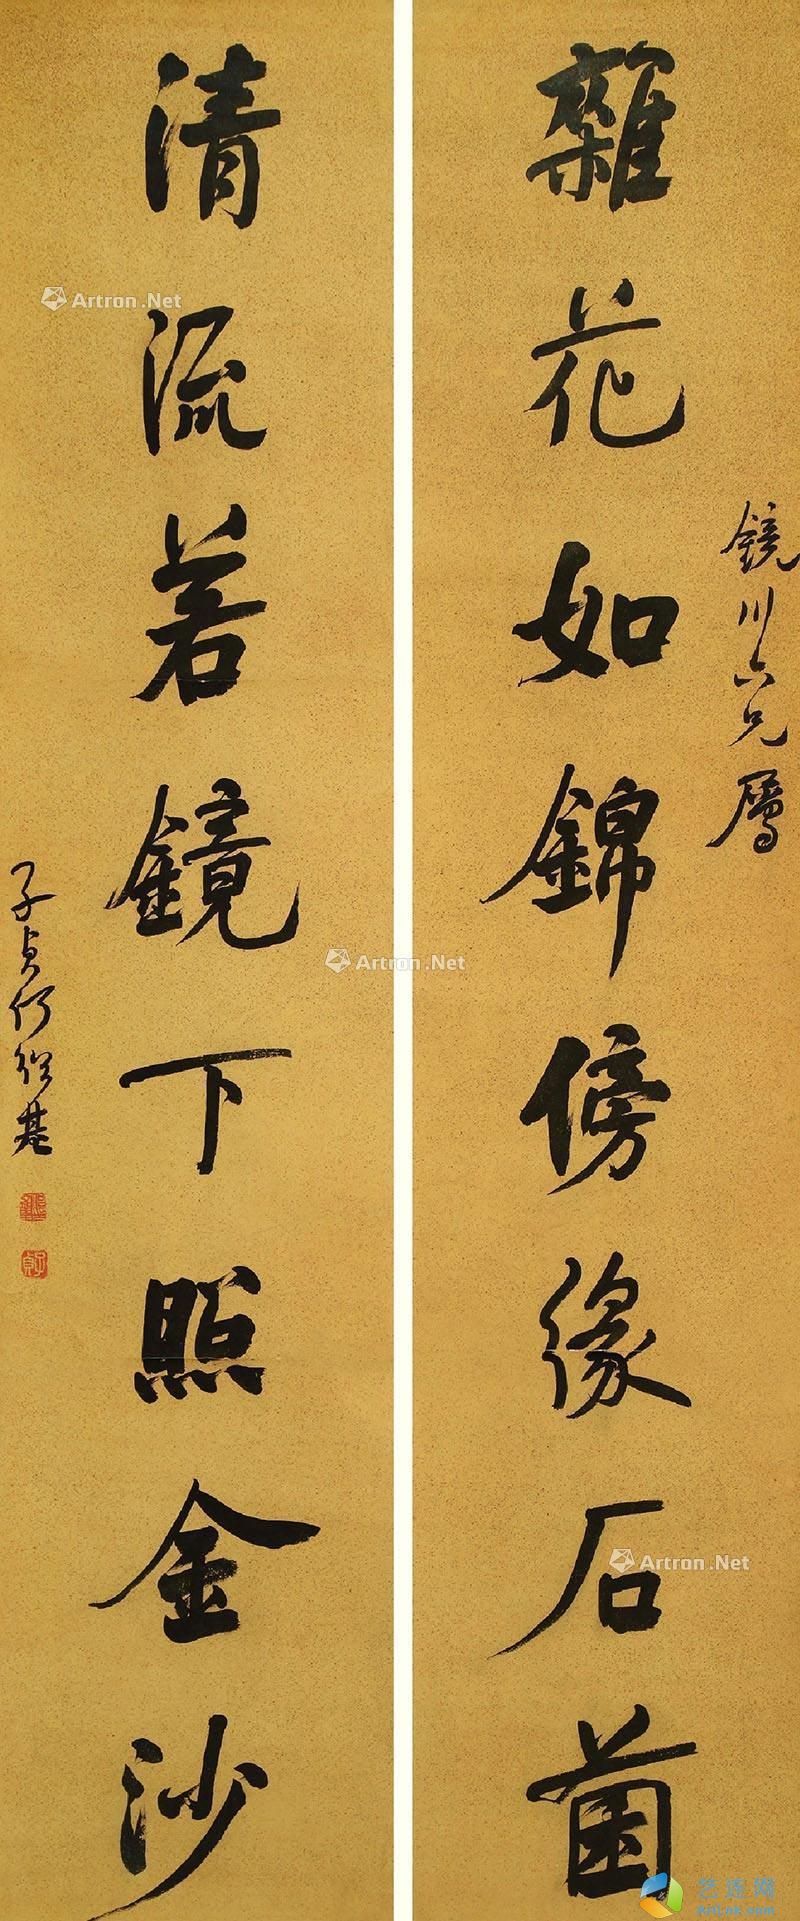 鏡川六兄屬
雜花如錦傍緣石菌
清流若鏡下照金沙
子貞何紹基
子貞
Artron.Net
Artron.Net
Artron.Net
艺连网